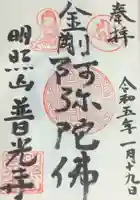 奉拝
令和五年一月九日
阿弥陀佛
明照山 普光寺